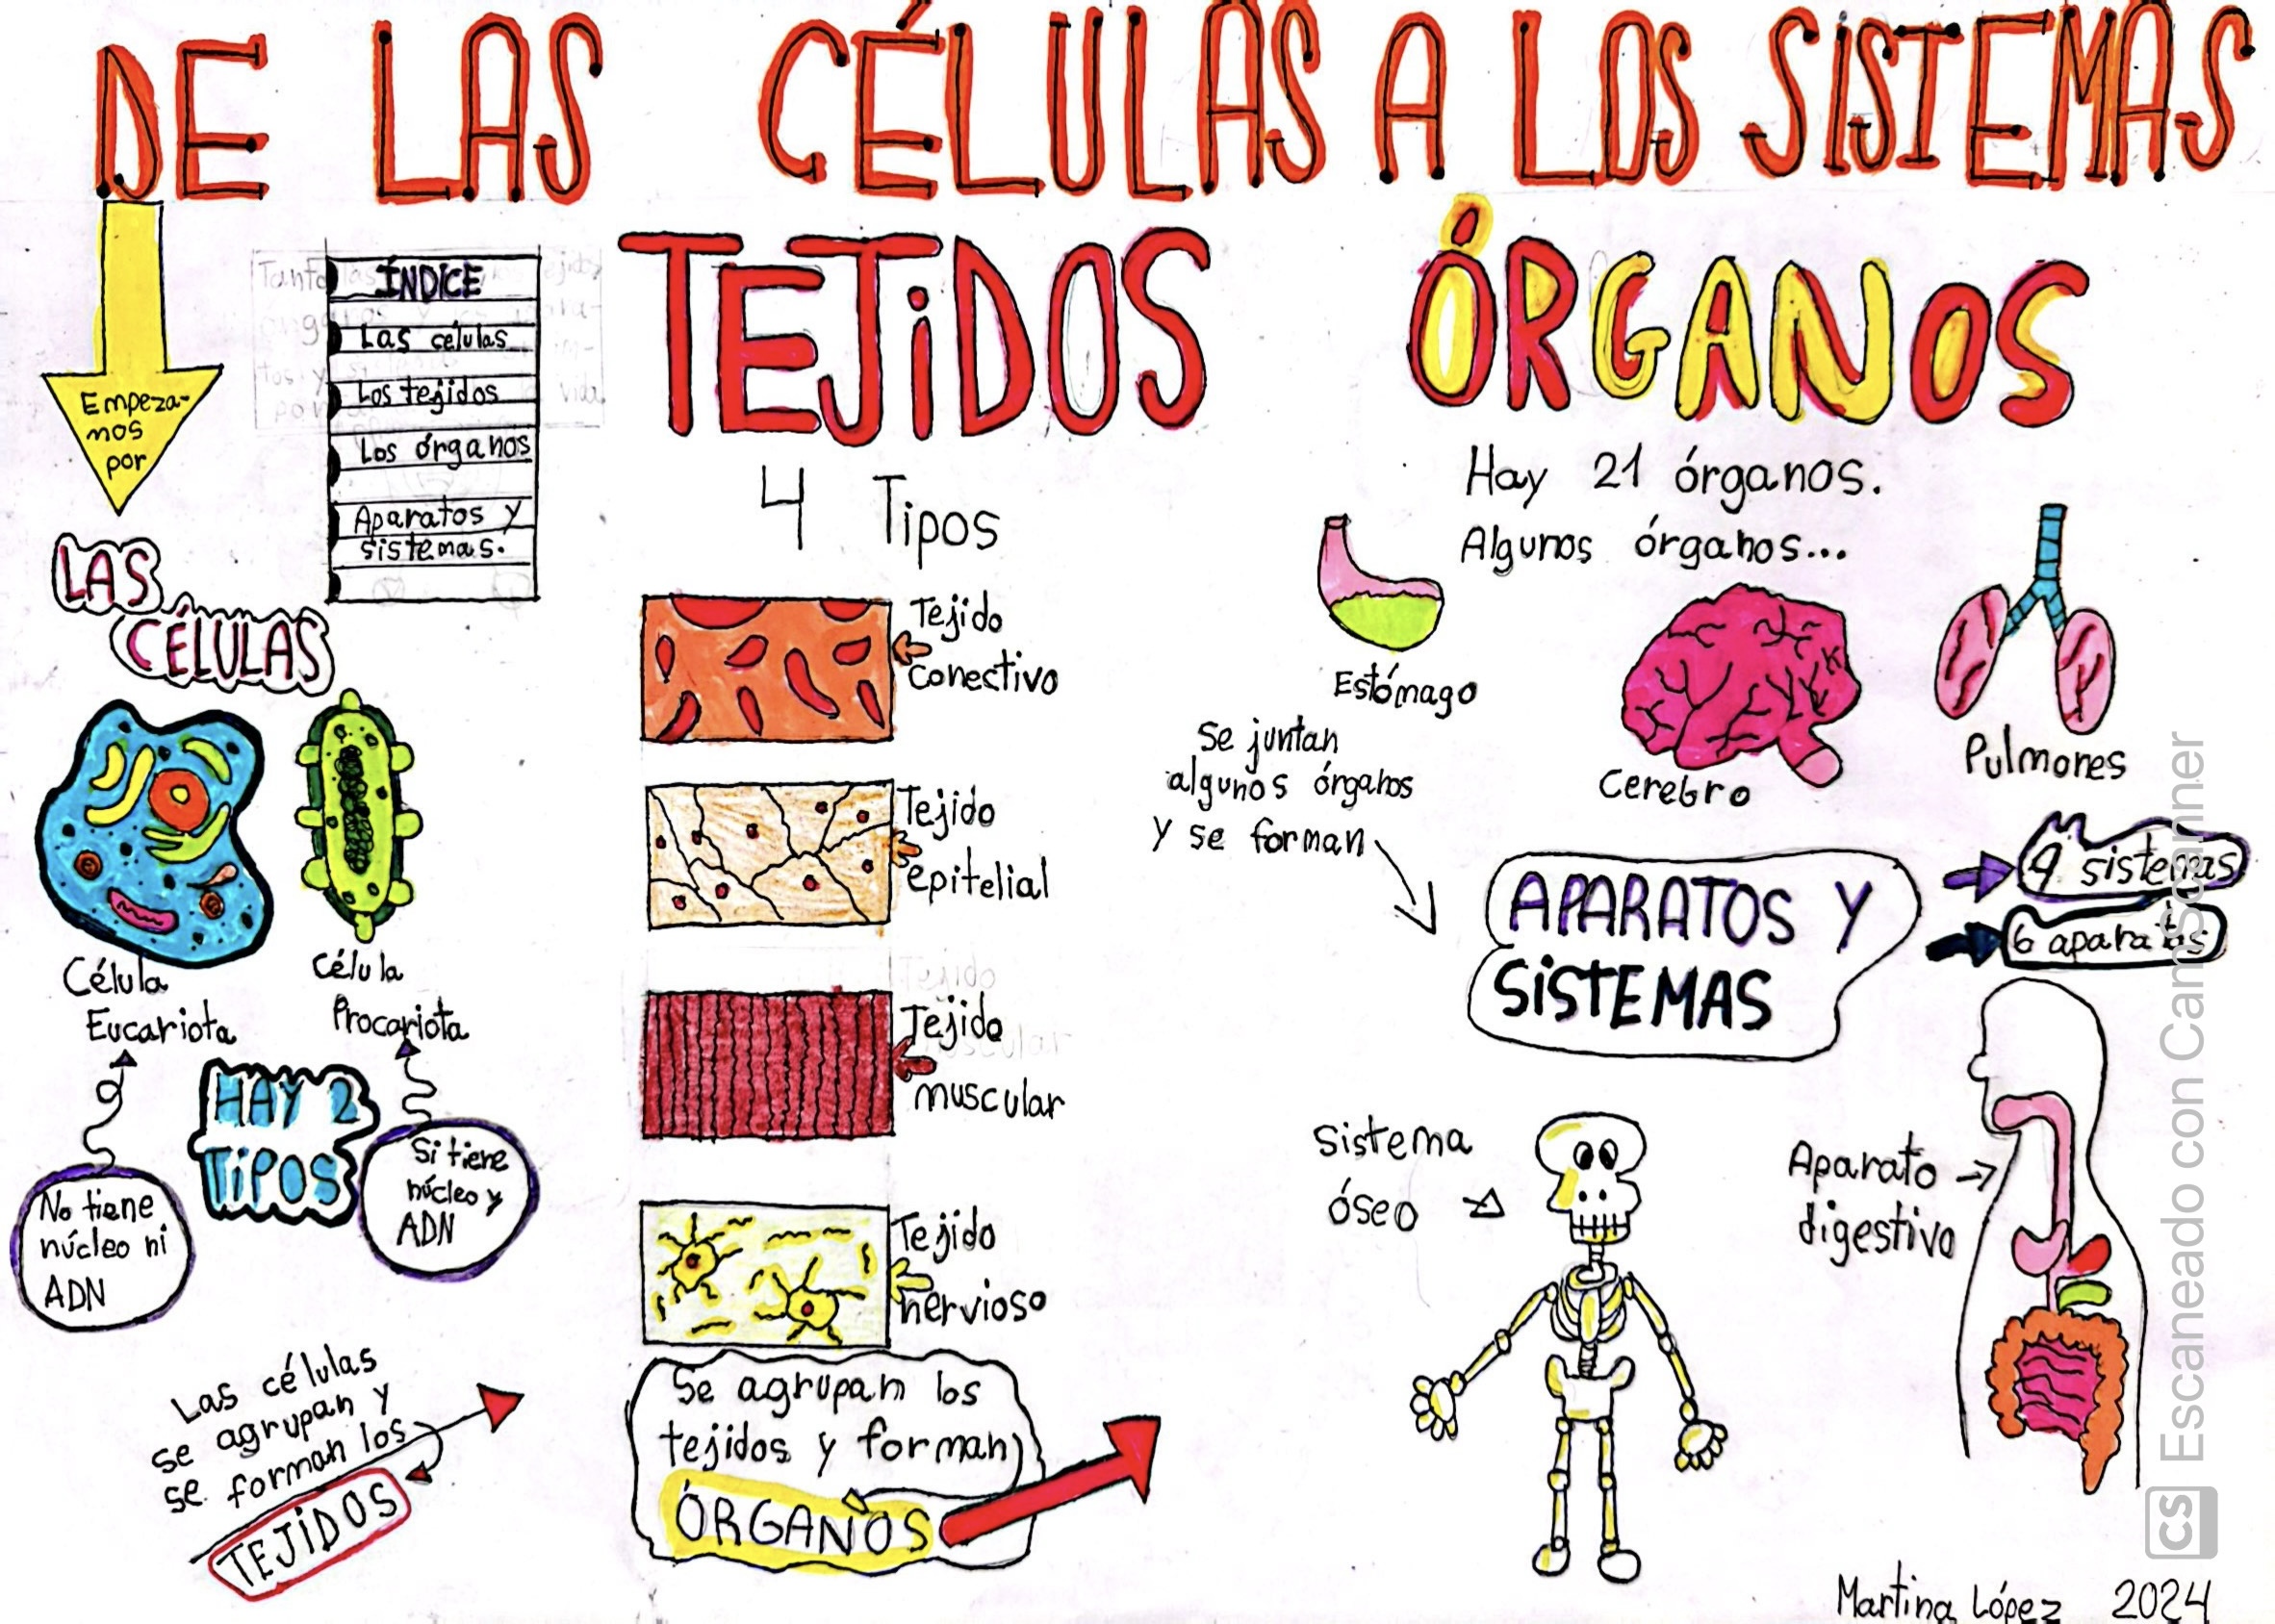 DE LAS CÉLULAS A LOS SISTEMAS
Empeza-
mos
por
ÍNDICE
Las células
Los tejidos
Los órganos
Aparatos y
sistemas.
LAS
CÉLULAS
Célula
Eucariota
Célula
Procariota
HAY 2
TIPOS
No tiene
núcleo ni
ADN
Si tiene
núcleo y
ADN
Las células
se agrupan y
se forman los
TEJIDOS
TEJIDOS
4 Tipos
Tejido
conectivo
Tejido
epitelial
Tejido
muscular
Tejido
nervioso
Se agrupan los
tejidos y forman
ÓRGANOS
ÓRGANOS
Hay 21 órganos.
Algunos órganos...
Estómago
Cerebro
Pulmones
Se juntan
algunos órganos
y se forman
APARATOS Y
SISTEMAS
sistemas
6 aparatos
Sistema
óseo
Aparato
digestivo
Martina López 2024
CS Escaneado con CamScanner